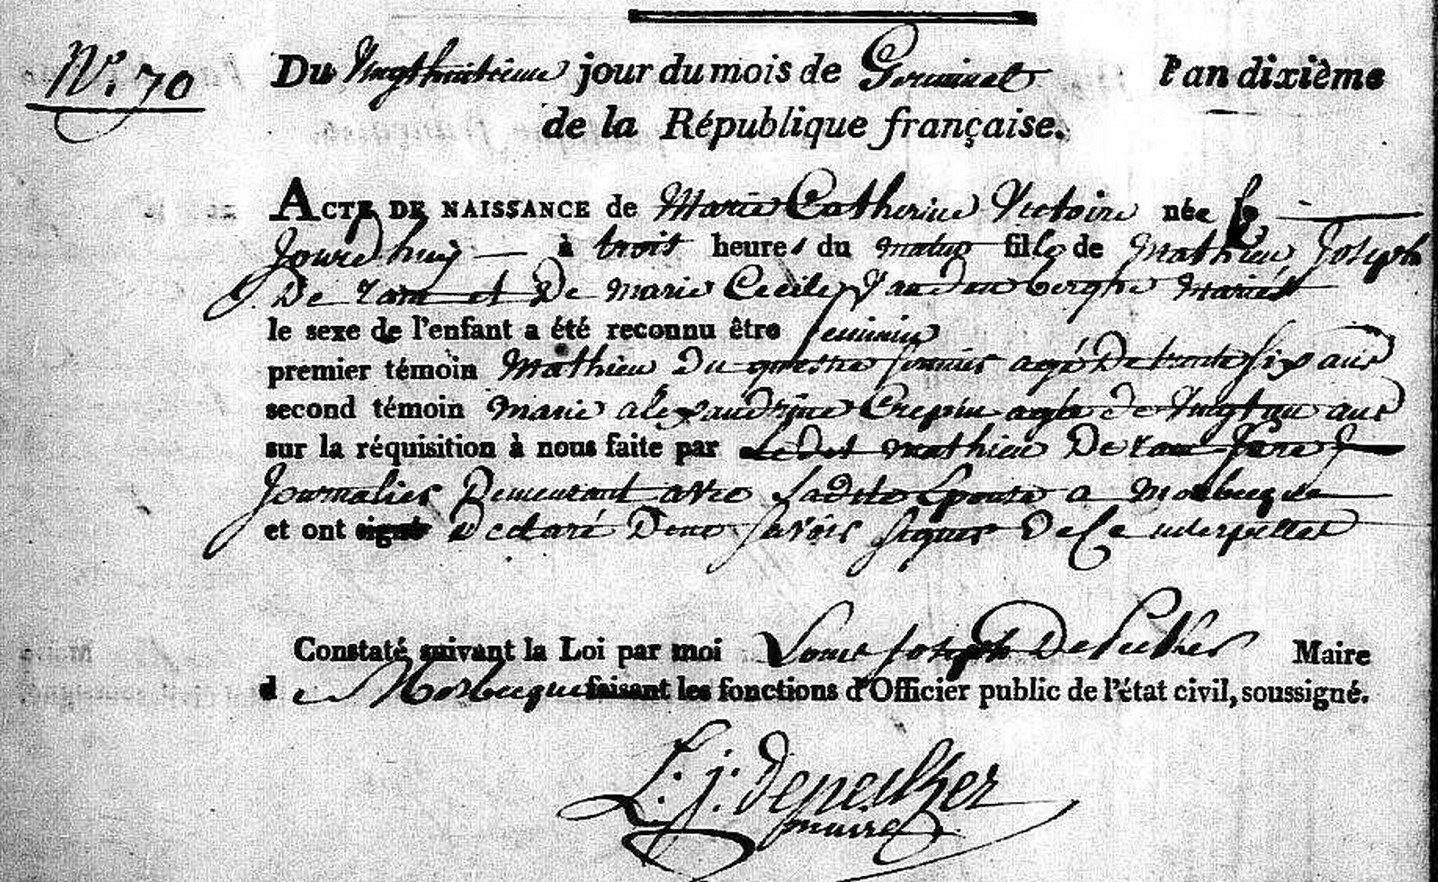 N.º 70
Du Vingthuitieme jour du mois de Germinal l'an dixième
de la République française.
ACTE DE NAISSANCE de Marie Catherine Victoire née le
Jourdhuy à trois heures du matin fille de Mathieu Joseph
De ram et De Marie Cecile Vandenberghe Mariés
le sexe de l'enfant a été reconnu être feminin
premier témoin Mathieu Du quesne agé De trente six ans
second témoin Marie alexandrine Crepin agée de Vingt un ans
sur la réquisition à nous faite par Ledit Mathieu De ram
Journalier Demeurant avec Ladite Epouse a Morbecque
et ont signé Declaré Savoir Signer De Ce interpellés
Constaté suivant la Loi par moi Louis Joseph De Peuker Maire
d e Morbecque faisant les fonctions d'Officier public de l'état civil, soussigné.
L: j: depeuker
maire